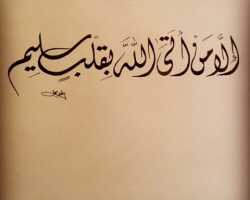 إِلَّا مَنْ أَتَى اللَّهَ بِقَلْبٍ سَلِيمٍ